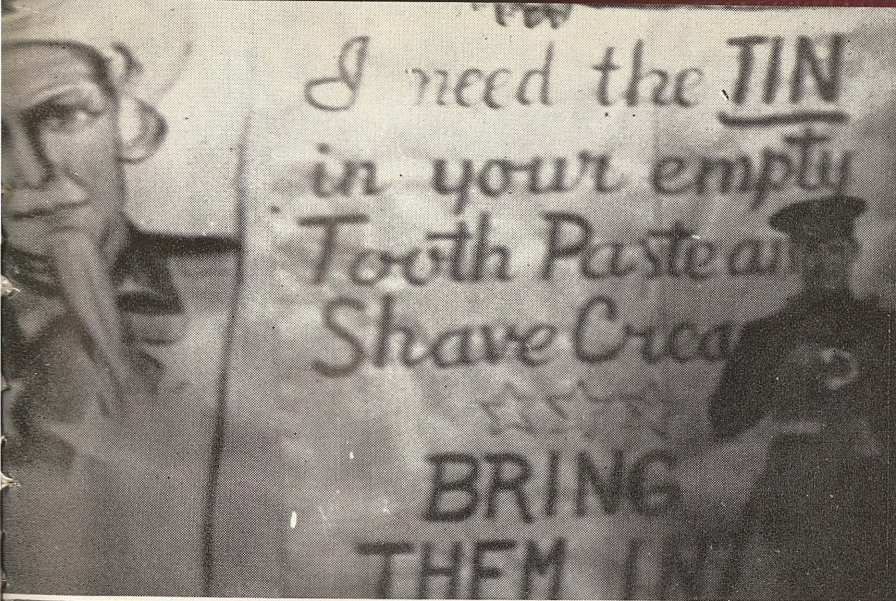 I need the TIN
in your empty
Tooth Paste
Shave
BRING
THEM